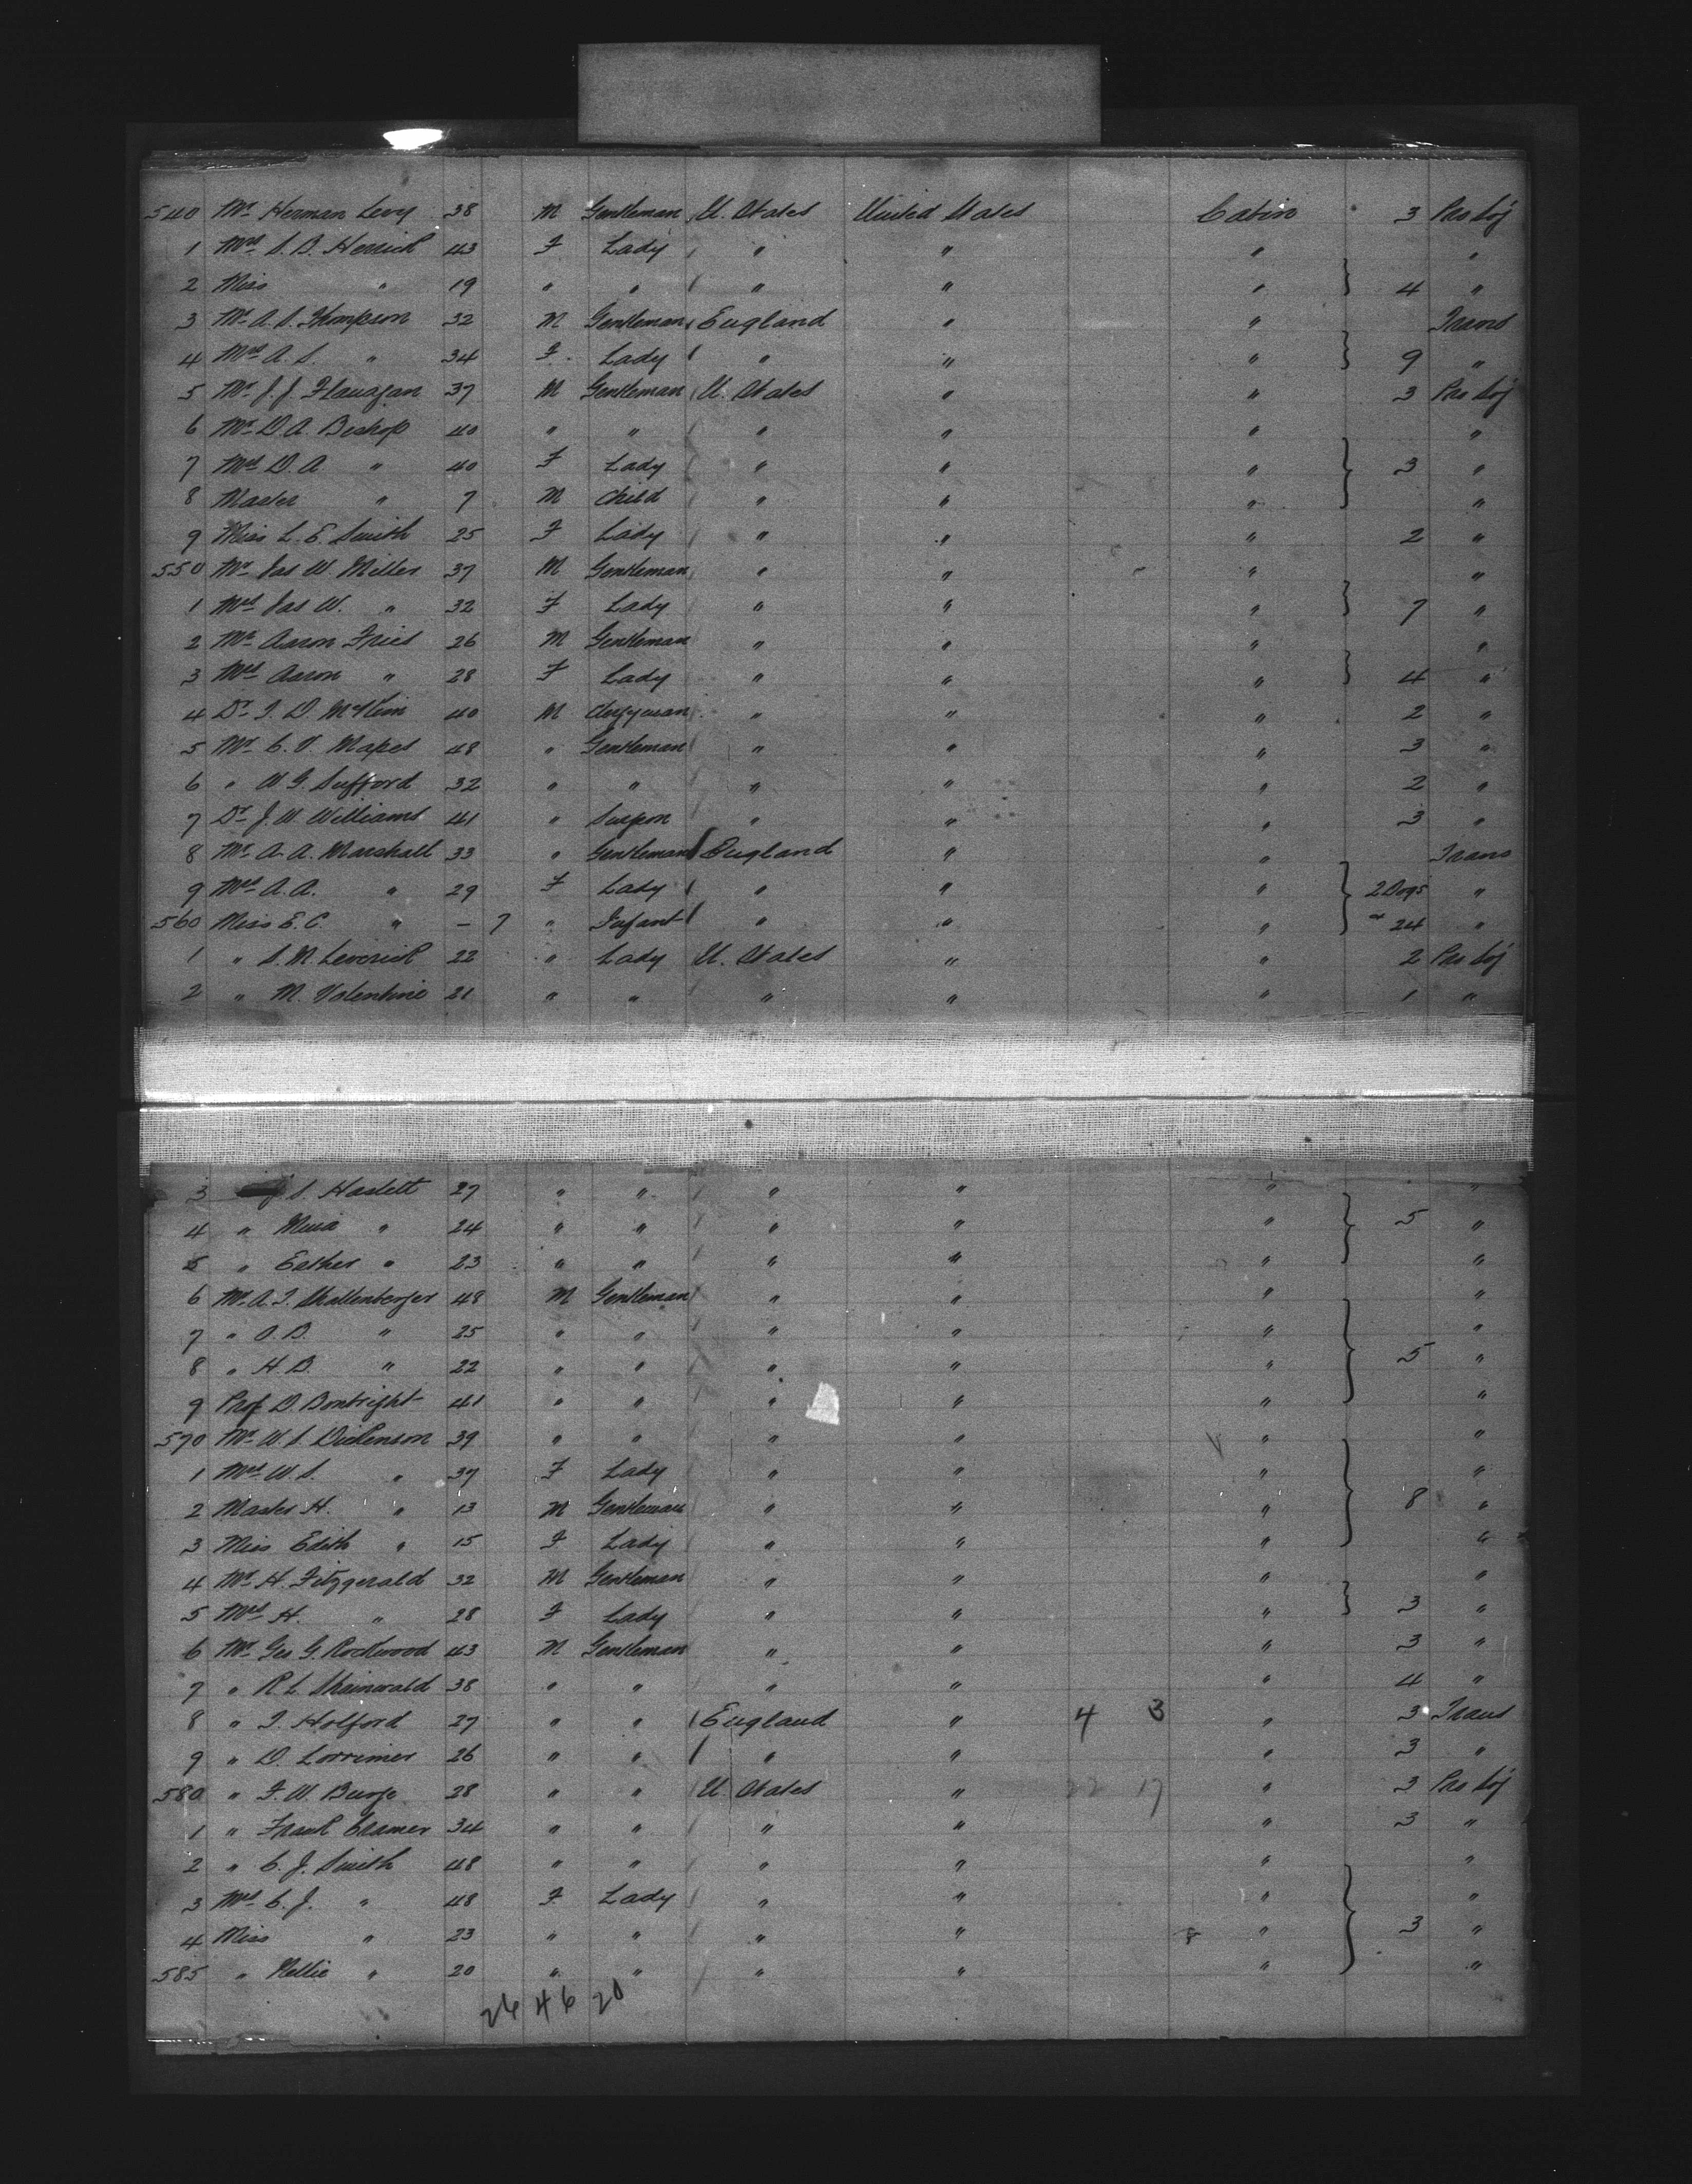 540 Mr Herman Levy 38 M Gentleman U. States United States Cabin 3 Pro Soj
1 Mrs S. B. Herrick 43 F Lady " " "  "
2 Miss " 19 " " " " " 4 "
3 Mr A. S. Thompson 32 M Gentleman England " " Trans
4 Mrs A. S. " 34 F. Lady " " " 9 "
5 Mr J. J. Flanagan 37 M Gentleman U. States " " 3 Pro Soj
6 Mr D. A. Bishop 40 " " " " " "
7 Mrs D. A " 40 F Lady " " " 3 "
8 Master " 7 M Child " " " "
9 Miss L. E. Smith 25 F Lady " " " 2 "
550 Mr Jas W. Miller 37 M Gentleman " " " "
1 Mrs Jas W. " 32 F Lady " " " 7 "
2 Mr Aaron Fries 26 M Gentleman " " " "
3 Mrs Aaron " 28 F Lady " " " 4 "
4 Dr I. D. McKim 40 M Clergyman " " " 2 "
5 Mr C. V. Mapes 48 " Gentleman " " " 3 "
6 " W G. 32 " " " " " 2 "
7 Dr J. W. Williams 41 " Surgeon " " " 3 "
8 Mr A. A. Marshall 33 " Gentleman England " " Trans
9 Mrs A. A. " 29 F Lady " " " 2 Dogs "
560 Miss E. C. " – 7 " Infant " " " 24 "
1 " S. M. Leverick 22 " Lady U. States " " 2 Pro Soj
2 " M. Valentine 21 " " " " " 1 "
3 S. Haslett 27 " " " " " "
4 " " 24 " " " " " 5 "
5 " Esther " 23 " " " " " "
6 Mr A. T. Shallenberger 48 M Gentleman " " " "
7 " O. B. " 25 " " " " " "
8 " H. B. " 22 " " " " " 5 "
9 Prof D. Bonbright 41 " " " " " "
570 Mr W. S. Dickenson 39 " " " " " "
1 Mrs W S. " 37 F Lady " " " "
2 Master H. " 13 M Gentleman " " " 8 "
3 Miss Edith " 15 F Lady " " " "
4 Mr H. Fitzgerald 32 M Gentleman " " " "
5 Mrs H. " 28 F Lady " " " 3 "
6 Mr Geo G. Rockwood 43 M Gentleman " " " 3 "
7 " R L Sheinwald 38 " " " " " 4 "
8 " T. Holford 27 " " England " 4 3 " 3 Trans
9 " D. Lorrimer 26 " " " " " 3 "
580 " F. W. 28 " " U. States " 22 17 " 3 Pro Soj
1 " Frank Cramer 34 " " " " " 3 "
2 " C. J. Smith 48 " " " " " "
3 Mrs C. J. " 48 F Lady " " " "
4 Miss " 23 " " " " " 3 "
585 " Nellie " 20 " " " " " "
26 46 20